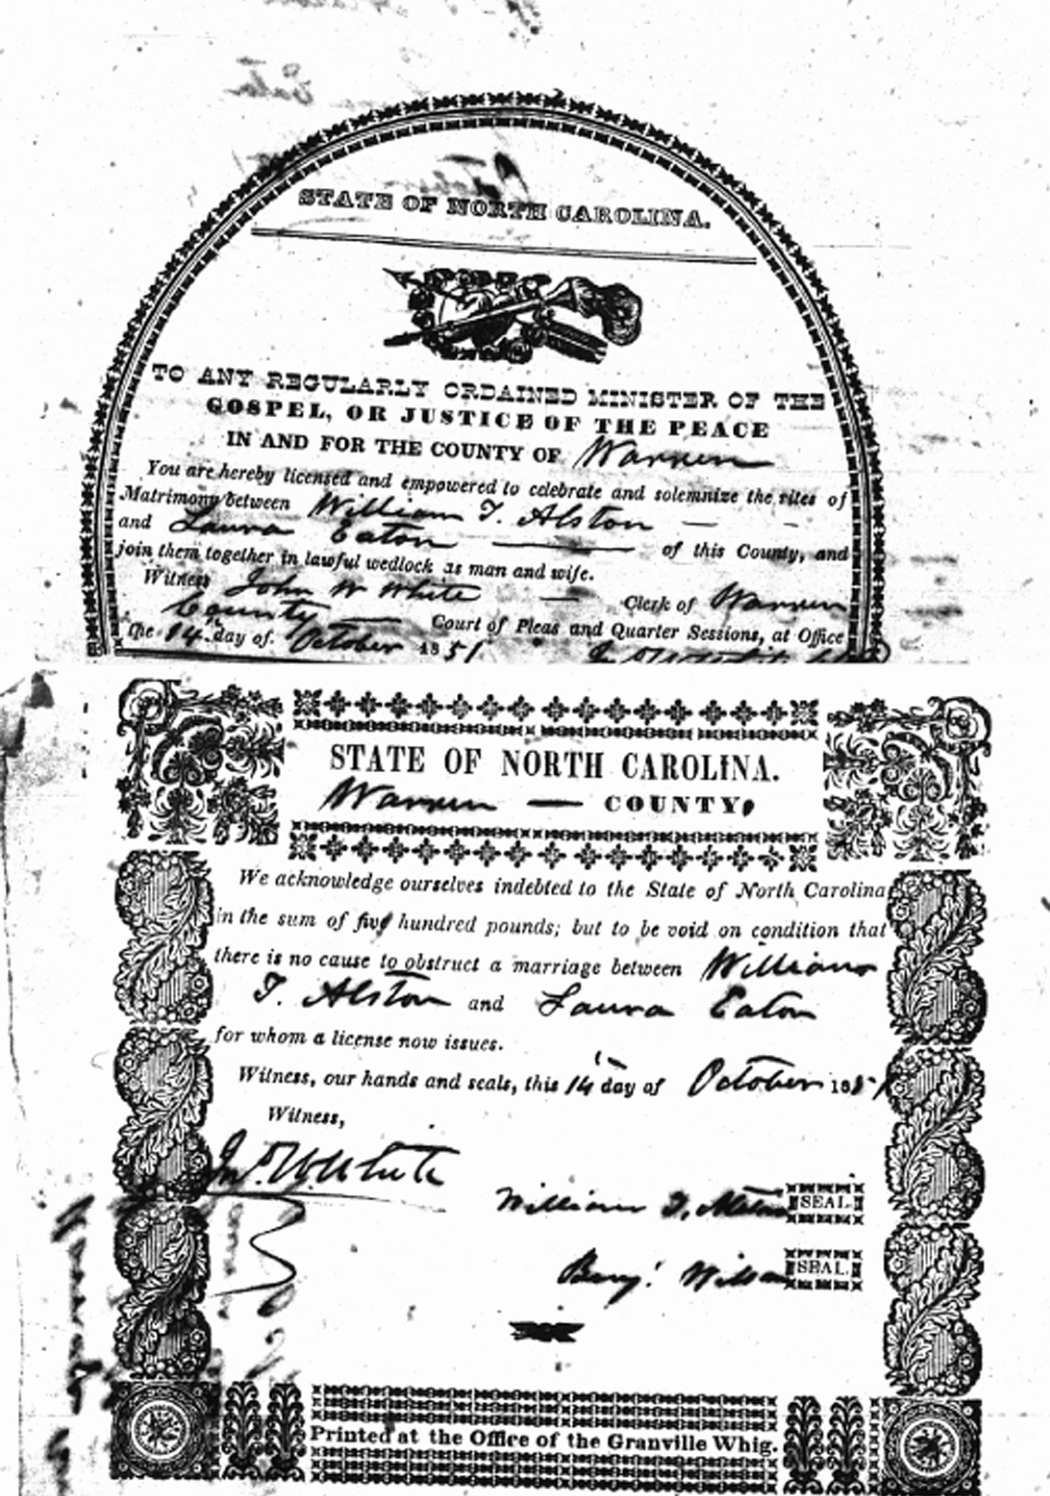 STATE OF NORTH CAROLINA.
TO ANY REGULARLY ORDAINED MINISTER OF THE
GOSPEL, OR JUSTICE OF THE PEACE
IN AND FOR THE COUNTY OF Warren
You are hereby licensed and empowered to celebrate and solemnize the rites of
Matrimony between William T. Alston
and Laura Eaton of this County, and
join them together in lawful wedlock as man and wife.
Witness John W White Clerk of Warren
County Court of Pleas and Quarter Sessions, at Office
the 14th day of October 1851
STATE OF NORTH CAROLINA.
Warren — COUNTY,
We acknowledge ourselves indebted to the State of North Carolina
in the sum of five hundred pounds; but to be void on condition that
there is no cause to obstruct a marriage between William
T. Alston and Laura Eaton
for whom a license now issues.
Witness, our hands and seals, this 14 day of October 1851
Witness,
Jno. W. White
William T. Alston SEAL.
Benj. SEAL.
Printed at the Office of the Granville Whig.